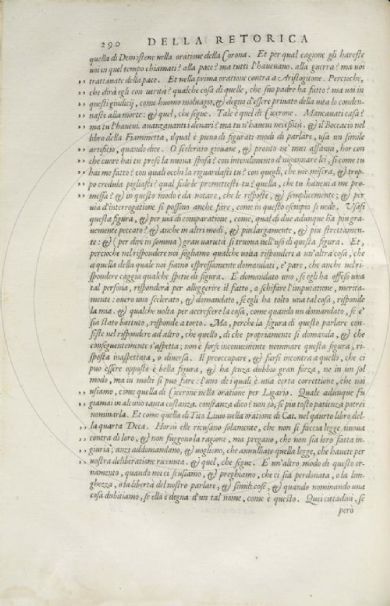 290 DELLA RETORICA
quella di Demostene nella oratione della Corona. Et per qual cagione gli hareste
uoi in quel tempo chiamati? alla pace? ma tutti l'haueuano. alla guerra? ma uoi
trattauate della pace. Et nella prima oratione contra a Aristogitone. Percioche,
che dirà egli con uerità? qualche cosa di quelle, che suo padre ha fatto? ma uoi in
questi giudicij, come huomo maluagio, & degno d'essere priuato della uita lo conden-
naste alla morte. & quel, che segue. Tale è quel di Cicerone. Mancauati casa?
ma tu l'haueui. auanzauanti denari? ma tu n'haueui necessità. & il Boccacio nel
libro della Fiammetta, il qual è pieno di figurati modi di parlare, usa un simile
artificio, quando dice. O scelerato giouane, & pronto ne' miei affanni, hor con
che cuore hai tu presa la nuoua sposa? con intendimento d'ingannare lei, si come tu
hai me fatto? con quali occhi la riguardasti tu? con quegli, che me misera, & trop-
po credula pigliasti? qual fede le promettesti tu? quella, che tu haueui a me pro-
messa? & in questo modo è da notare, che le risposte, & semplicemente, & per
uia d'interrogatione si possono anche fare, come in questo esempio si uede. Usasi
questa figura, & per uia di comparatione, come, qual di due adunque ha più gra-
uemente peccato? & anche in altri modi, & più largamente, & più strettamen-
te: & (per dirvi in somma) gran uarietà si truoua nell'usi di questa figura. Et,
percioche nel rispondere noi sogliamo qualche uolta rispondere a un'altra cosa, che
a quella della quale noi siamo espressamente dimandati, e' pare, che anche nel ri-
spondere caggia qualche sorte di figura. E domandato uno, se egli ha offeso una
tal persona, risponderà per alleggerire il fatto, o schifare l'imputatione, merita-
mente: ouero uno scelerato, & domandato, se egli ha tolto una tal cosa, risponde
la mia. & qualche uolta per accrescere la cosa, come quando un domandato, se e'
sia stato battuto, risponde a torto. Ma, perche la figura di questo parlare con-
siste nel rispondere ad altro, che quello, di che propriamente si domanda, & che
consequentemente s'aspetta; non è forse inconueniente nominare questa figura, ri-
sposta inaspettata, o diuersa. Il preoccupare, & farsi incontra a quello, che ci
può essere opposto è bella figura, & ha senza dubbio gran forza, ne in un sol
modo, ma in molti si può fare: l'uno de i quali è una certa correttione, che noi
usiamo, come quella di Cicerone nella oratione per Ligario. Quale adunque fu
giamai in alcuno tanta costanza. constanza dico? non sò, se più tosto patienza potrei
nominarla. Et come quella di Tito Liuio nella oratione di Cat. nel quarto libro del-
la quarta Deca. Horsù elle recusano solamente, che non si faccia legge nuoua
contra di loro, & non fuggono la ragione, ma pregano, che non sia loro fatta in-
giuria; anzi addomandano, & uogliono, che annulliate quella legge, che hauete per
uostra deliberatione riceuuta. & quel, che segue. E un'altro modo di questo or-
namento, quando noi ci scusiamo, & preghiamo, che ci sia perdonata, o la lun-
ghezza, o la libertà del nostro parlare, & simili cose. & quando nominando una
cosa dubitiamo, se ella è degna d'un tal nome, come è questo. Quei cittadini, se
però